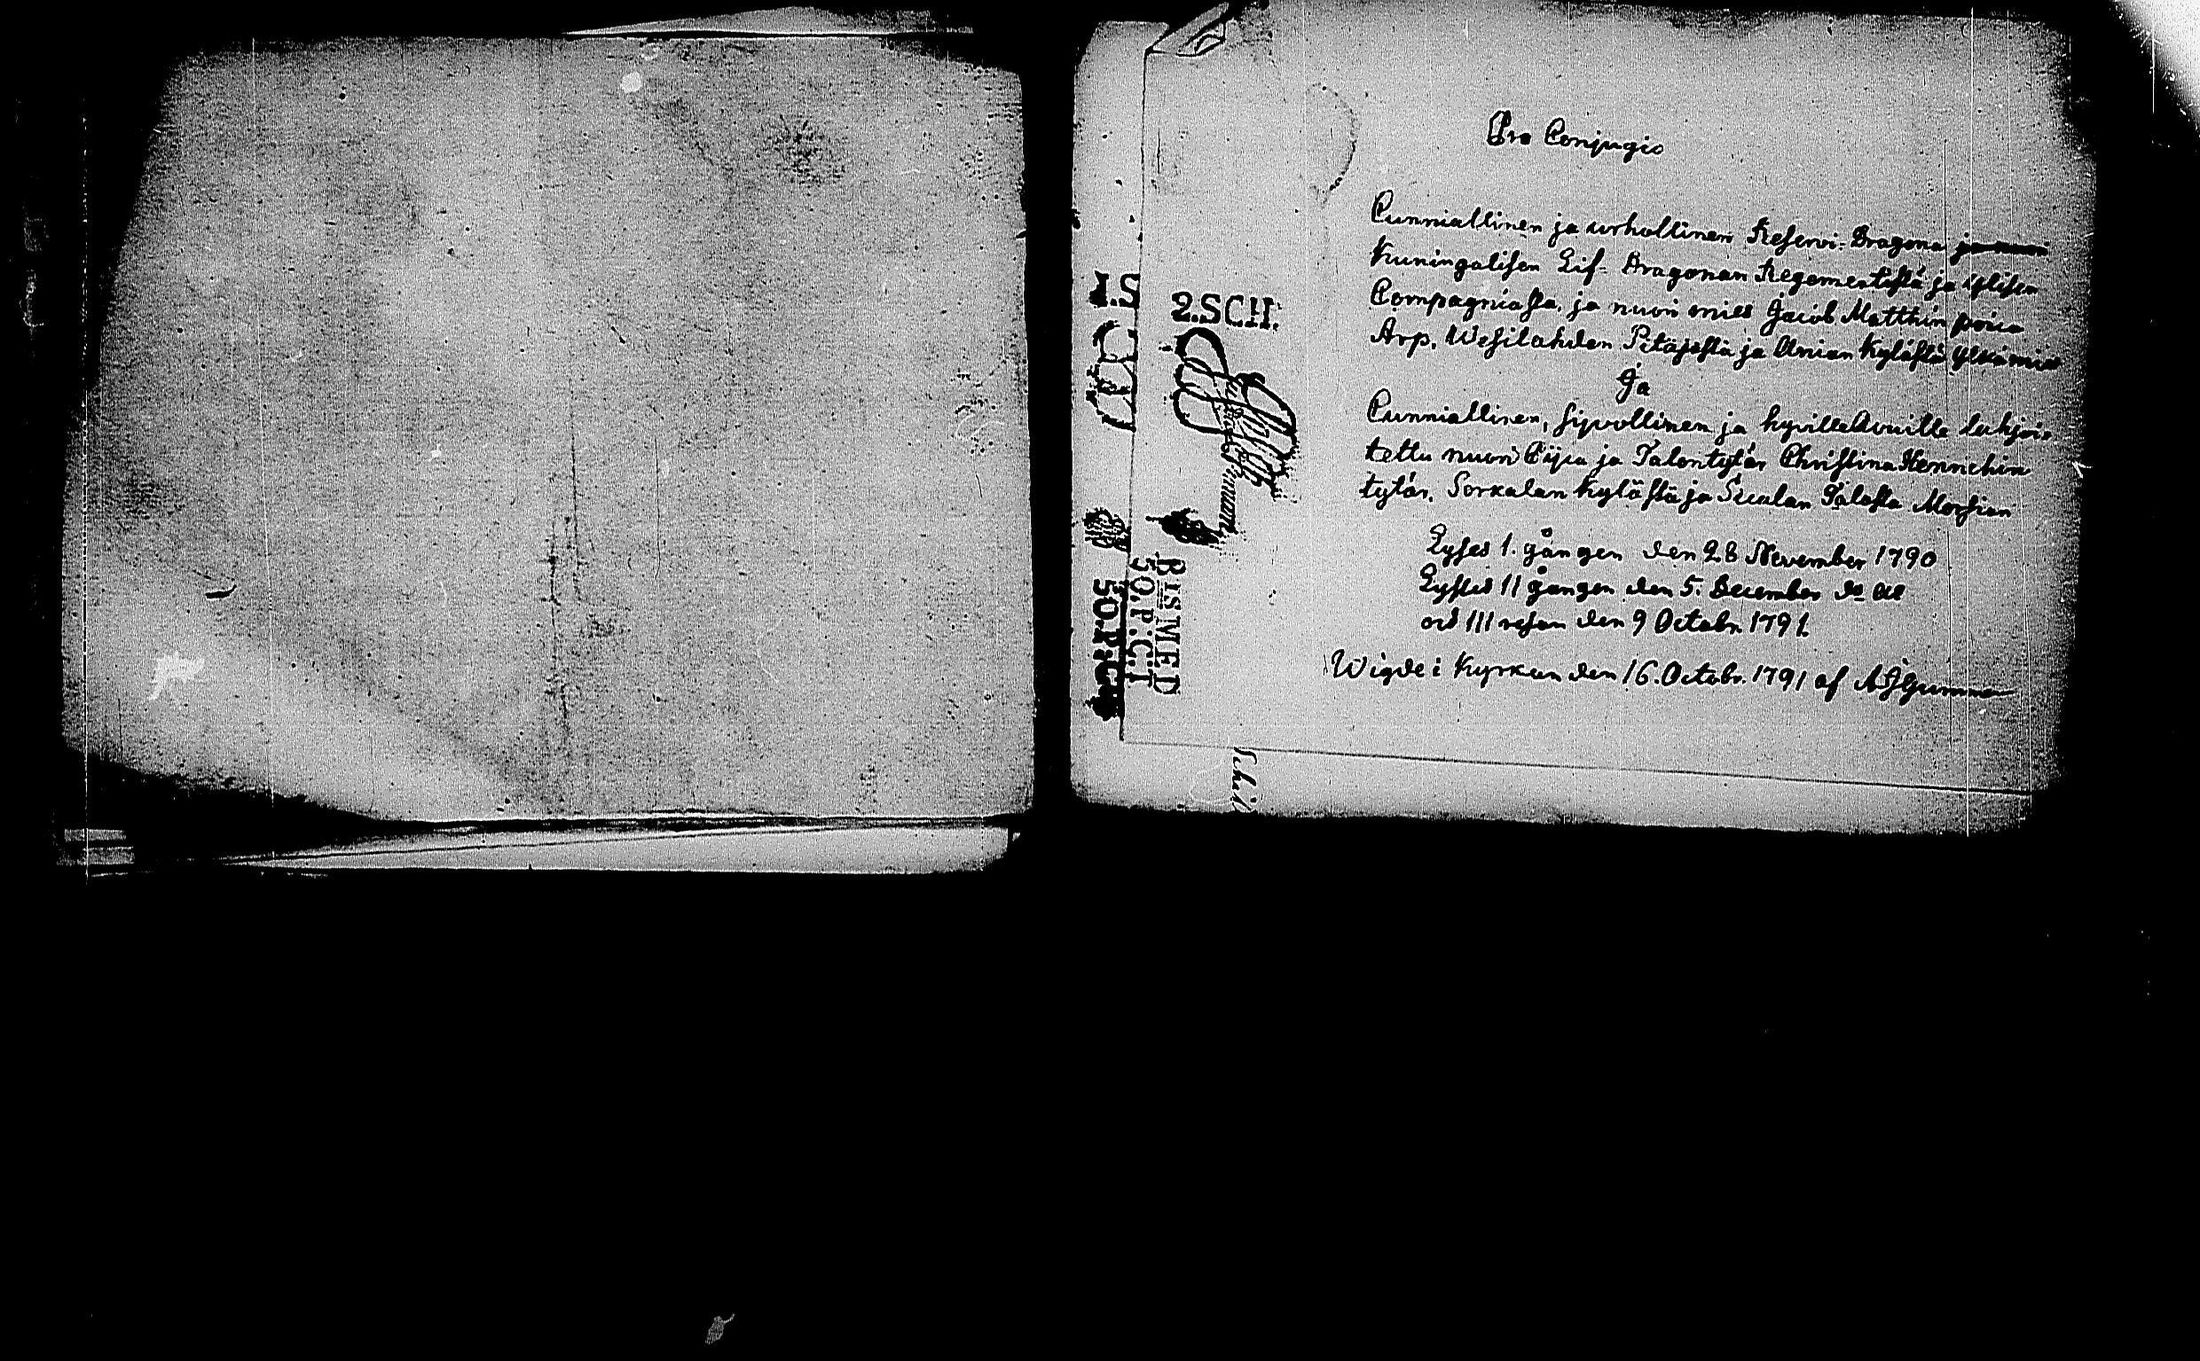 Pro Conjugio
Cunniallinen ja urhollinen Reservi-Dragona
Kuningalisen Lif-Dragonan Regementistä ja
Compagniasta, ja nuori mies Jacob Matthin poica
Arp. Wesilahden Pitäjästä ja Anian Kylästä
Ja
Cunniallinen, sijvollinen ja hyvillä Avuilla lahjoi-
tettu nuori Pijca ja Talontytär Christina Hennrichin
tytär. Sorkalan Kylästä ja Talosta Morsian
Lyses 1. gången den 28 November 1790
Lystes II gången den 5. December
och III resan den 9 Octobr. 1791.
Wigde i Kyrkan den 16. Octobr. 1791 af
2.SCH.
1.S
BISMED
5O.P:C.T
5O.P:C.T